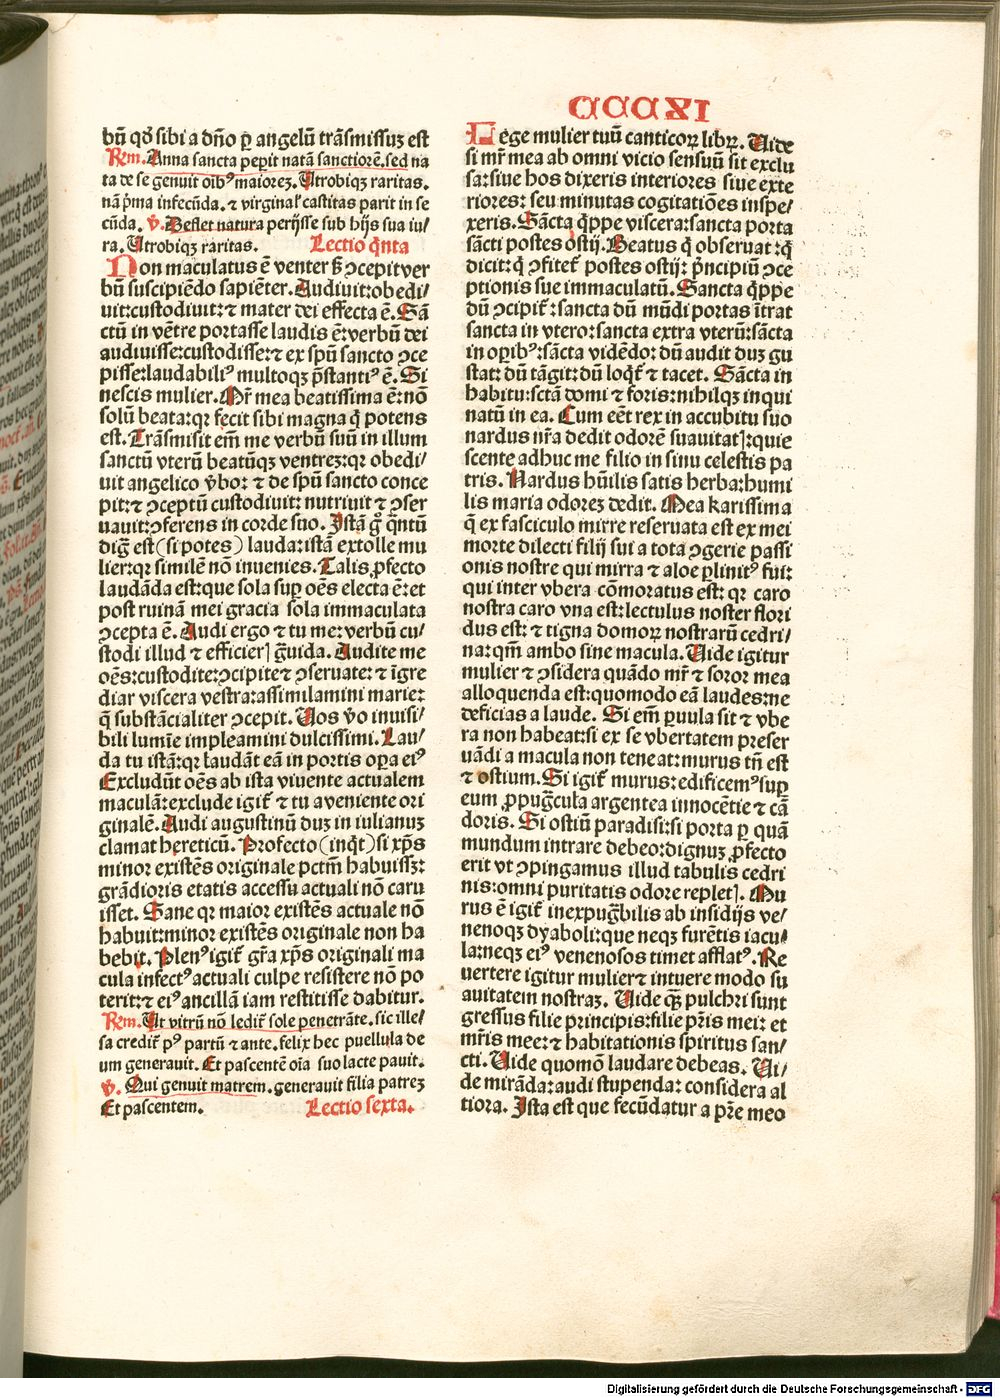 CCCXI
bū qď sibi a dño ꝑ angelū trāsmissuꝫ est
Rm̄. Anna sancta peꝑit natā sanctiorē. sed na
ta de se genuit oib⁹ maiorez. Utrobiqꝫ raritas.
nā p̄ma infecūda. ⁊ virginal' castitas parit in se
cūda. v̄. Desset natura perijsse sub hijs sua iu/
ra. Utrobiqꝫ raritas. Lectio q̄nta
Non maculatus ē venter ꝯcepit ver
bū suscipiēdo sapiēter. Audiuit: obedi/
uit: custodiuit: ⁊ mater dei effecta ē. Sā
ctū in vētre portasse laudis ē: verbū dei
audiuisse: custodisse: ⁊ ex spū sancto ꝯce
pisse: laudabili⁹ multoqꝫ p̄stanti⁹ ē. Si
nescis mulier. Mr̄ mea beatissima ē: nō
solū beata: qꝛ fecit sibi magna q̄ potens
est. Trāsmisit em̄ me verbū suū in illum
sanctū vterū beatūqꝫ ventrez: qꝛ obedi/
uit angelico v̄bo: ⁊ de spū sancto conce
pit: ⁊ ꝯceptū custodiuit: nutriuit ⁊ ꝯser
uauit: ꝯferens in corde suo. Istā g̊ q̄ntū
dig̃ est (si potes) lauda: istā extolle mu
lier: qꝛ similē nō inuenies. Talis ꝓfecto
laudāda est: que sola suꝑ oēs electa ē: et
post ruinā mei gracia sola immaculata
ꝯcepta ē. Audi ergo ⁊ tu me: verbū cu/
stodi illud ⁊ efficierꝭ g̃uida. Audite me
oēs: custodite: ꝯcipite ⁊ ꝯseruate: ⁊ īgre
diar viscera vestra: assimilamini marie:
q̄ substācialiter ꝯcepit. Uos v̄o inuisi/
bili lumīe impleamini dulcissimi. Lau/
da tu istā: qꝛ laudāt eā in portis oꝑa ei⁹
Excludūt oēs ab ista viuente actualem
maculā: exclude igit̄ ⁊ tu a veniente ori
ginalē. Audi augustinū duꝫ in iulianuꝫ
clamat hereticū. Profecto (inq̄t) si xp̄s
minor existēs originale pctm̄ habuissꝫ:
grādioris etatis accessu actuali nō caru
isset. Sane qꝛ maior existēs actuale nō
habuit: minor existēs originale non ha
bebit. Plen⁹ igit̄ gr̄a xp̄s originali ma
cula infect⁹ actuali culpe resistere nō po
terit: ⁊ ei⁹ ancillā iam restitisse dabitur.
Rm̄. Ut vitrū nō ledit̄ sole penetrāte. sic ille/
sa credit̄ p⁹ partū ⁊ ante. felix hec puellula de
um generauit. Et pascentē oīa suo lacte pauit.
v̄. Qui genuit matrem. generauit filia patreꝫ
Et pascentem. Lectio sexta.
Lege mulier tuū canticoꝝ librꝝ. Uide
si mr̄ mea ab omni vicio sensuū sit exclu
sa: siue hos dixeris interiores siue exte
riores: seu minutas cogitatiōes inspe/
xeris. Sācta q̄ppe viscera: sancta porta
sācti postes ostij. Beatus q̄ obseruat: q̄
dicit: q̄ ꝯfitet̄ postes ostij: p̄ncipiū ꝯce
ptionis sue immaculatū. Sancta q̄ppe
dū ꝯcipit̄: sancta dū mūdi portas ītrat
sancta in vtero: sancta extra vterū: sācta
in oꝑib⁹: sācta vidēdo: dū audit duꝫ gu
stat: dū tāgit: dū loq̄t̄ ⁊ tacet. Sācta in
habitu: sctā domi ⁊ foris: nihilqꝫ inqui
natū in ea. Cum eēt rex in accubitu suo
nardus nr̄a dedit odorē suauitatꝭ: quie
scente adhuc me filio in sinu celestis pa
tris. Nardus hūilis satis herba: humi
lis maria odorez dedit. Mea karissima
q̄ ex fasciculo mirre reseruata est ex mei
morte dilecti filij sui a tota ꝯgerie passi
onis nostre qui mirra ⁊ aloe ꝑlinit⁹ fui:
qui inter vbera cōmoratus est: qꝛ caro
nostra caro vna est: lectulus noster flori
dus est: ⁊ tigna domoꝝ nostrarū cedri/
na: qm̄ ambo sine macula. Uide igitur
mulier ⁊ ꝯsidera quādo mr̄ ⁊ soror mea
alloquenda est: quomodo eā laudes: ne
deficias a laude. Si em̄ ꝑuula sit ⁊ vbe
ra non habeat: si ex se vbertatem preser
uādi a macula non teneat: murus tn̄ est
⁊ ostium. Si igit̄ murus: edificem⁹ suꝑ
eum ꝓpug̃cula argentea innocētie ⁊ cā
doris. Si ostiū paradisi: si porta ꝑ quā
mundum intrare debeo: dignuꝫ ꝓfecto
erit vt ꝯpingamus illud tabulis cedri
nis: omni puritatis odore repletꝭ. Mu
rus ē igit̄ inexpug̃bilis ab insidijs ve/
nenoqꝫ dyaboli: que neqꝫ furētis iacu/
la: neqꝫ ei⁹ venenosos timet afflat⁹. Re
uertere igitur mulier ⁊ intuere modo su
auitatem nostraꝫ. Uide qꝫ pulchri sunt
gressus filie principis: filie pr̄is mei: et
mr̄is mee: ⁊ habitationis spiritus san/
cti. Uide quomō laudare debeas. Ui/
de mirāda: audi stupenda: considera al
tiora. Ista est que fecūdatur a pr̄e meo
Digitalisierung gefördert durch die Deutsche Forschungsgemeinschaft - DFG